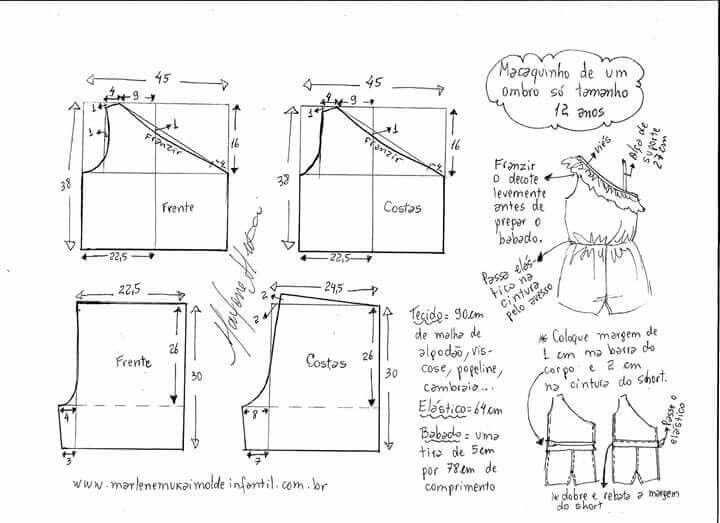 45
4
9
1
1
1
Franzir
4
16
38
Frente
22,5
45
4
9
1
1
Franzir
4
16
38
Costas
22,5
Macaquinho de um
ombro só tamanho
12 anos
Franzir
o decote
levemente
antes de
prepar o
babado.
viés
Alça de
suporte
27 cm
Passa elás-
tico na
cintura
pelo avesso
22,5
Frente
26
30
4
3
24,5
2
2
Costas
26
30
8
7
Tecido = 90cm
de malha de
algodão, vis-
cose, popeline,
cambraia...
Elástico = 64cm
Babado = uma
tira de 5cm
por 78cm de
comprimento
* Coloque margem de
1 cm na barra do
corpo e 2 cm
na cintura do short.
Passe o
elástico
* dobre e rebata a margem
do short
www.marlenemukaimoldeinfantil.com.br